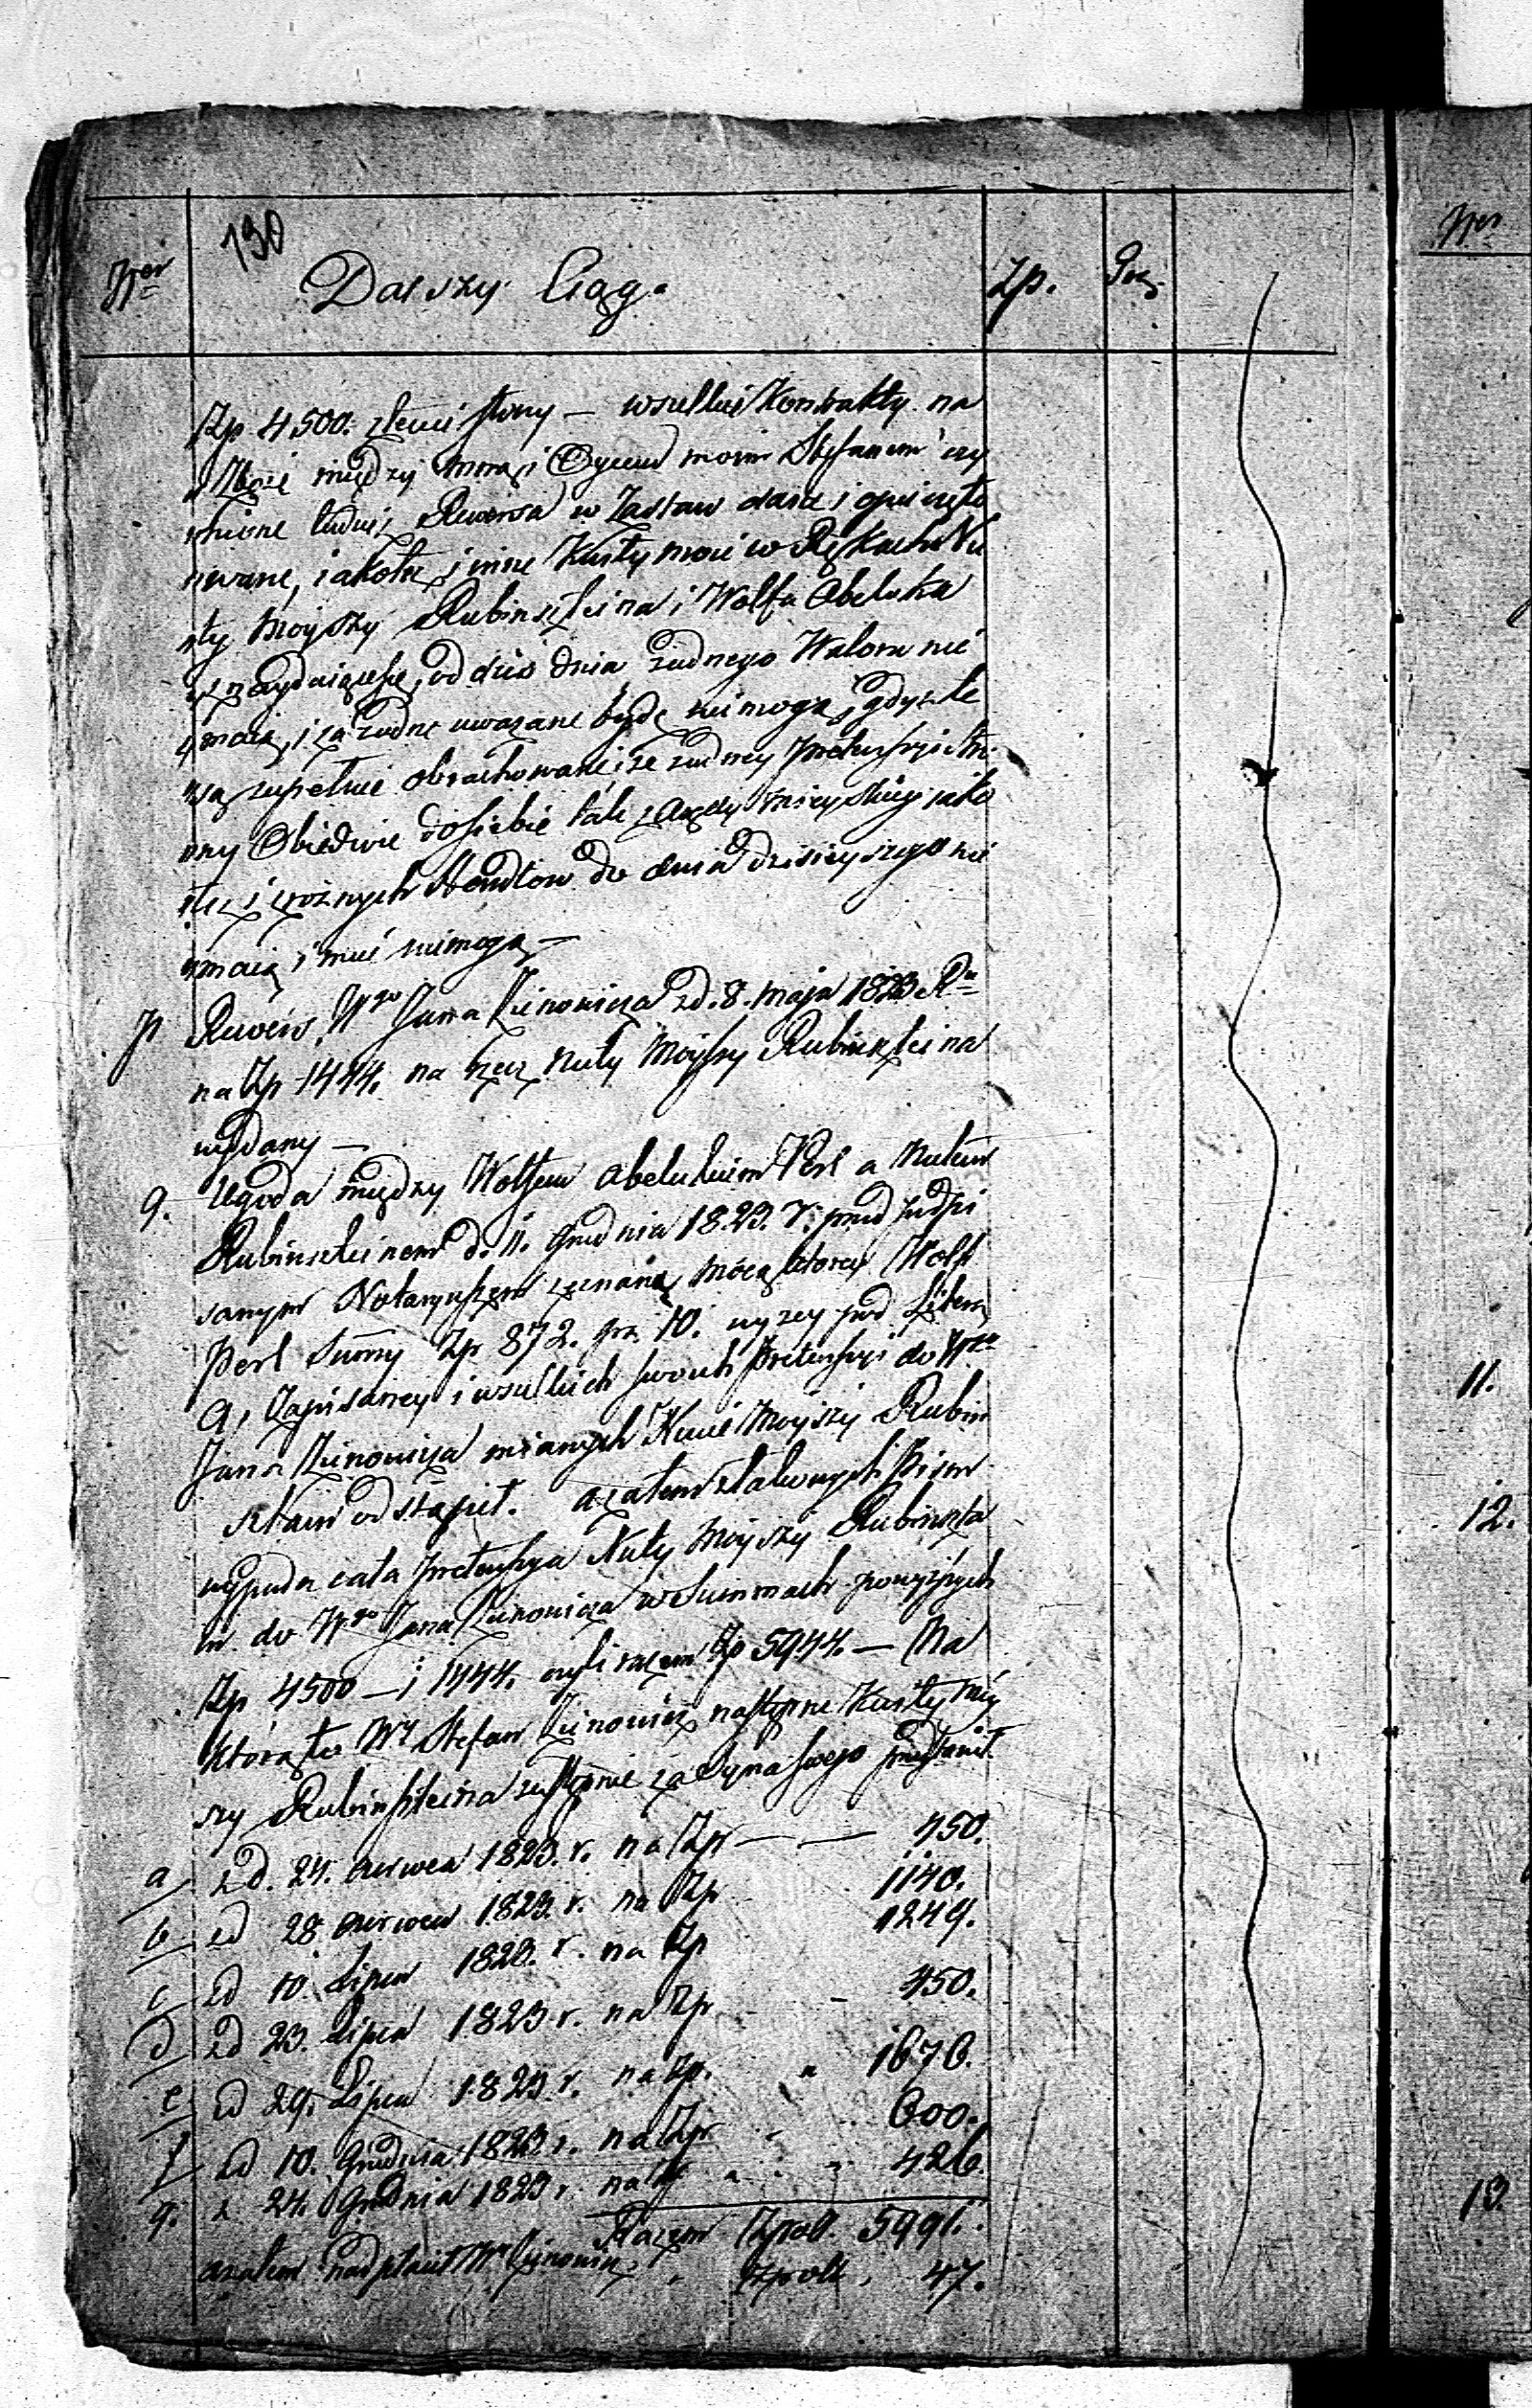 130
Ner Dalszy Ciąg. Zp. Grz
Zp 4500. złemi stwy — wszelkie Kontrakty na
Zboże między mną i Oycem moim Stefanem czy
nione tudzież Rewersa w Zastaw dane i opieczęto
wane, jakoteż i inne Kwity moie w Rękach Nu
ty Moyszy Rubinszteina i Wolfa Abeluka
znayduiącesię, od dziś dnia żadnego Waloru nie
maią, i za żadne uważane bydź niemogą, gdyż te
są zupełnie obrachowane, że żadney pretensyi Str.
ony Obiedwie dosiebie tak z Arędy mieyskiey jako
też i z różnych Handlow do dnia dzisieyszego nie
maią i mieć niemogą —
p Rewers Wgo Jana Zienowicza z d. 8. maja 1823 Ru
na Zp 1444. na rzecz Nuty Moyszy Rubinszteina
wydany —
q. Ugoda między Wolfem Abelukiem Perl a Nutem
Rubinszteinem d. 11. Grudnia 1823. r. przed podpi
sanym Notaryuszem zeznana, mocą ktorey Wolf
Perl Summy Zp 872. gr. 10. wyzey pod Literą
a, Zapisaney i wszelkich swoich pretensyi do Wgo
Jana Zienowicza mianych Nucie Moyszy Rubin
sztein odstąpił. azatem z takowych Pism
wypada cała pretensya Nuty Moyszy Rubinszta
in do Wgo Jana Zienowicza w Summach powyższych
Zp 4500 — i 1444. czyli razem Zp 5944. — Na
którą to Wy Stefan Zienowicz następne Kwity Moy
szy Rubinszteina zupełnie za Syna swego przedstawił.
a z d. 24. czerwca 1823. r. na Zp — — 450.
b z d 28 czerwca 1823. r. na Zp 1140.
c z d 10. Lipca 1823. r. na Zp 1249.
d z d 23. Lipca 1823 r. na Zp - 450.
e z d 29. Lipca 1823 r. na Zp. „ 1676.
f z d 10. Grudnia 1823 r. na Zp - 600.
g. z. 24. Grudnia 1823 r. na Zp „ „ 426.
Razem Zpoll. 5991.
azatem nadpłacił Wy Zienowicz „ Zpoll. 47.
Ner
11.
12.
13.